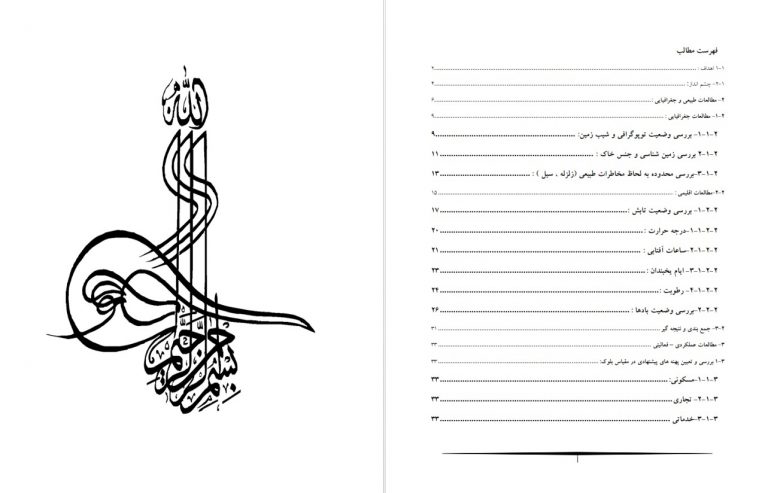 بسم الله الرحمن الرحیم
فهرست مطالب
۱-۱ اهداف : ................ ۲
۱-۲- چشم انداز: ................ ۴
۲- مطالعات طبیعی و جغرافیایی ................ ۶
۲-۱- مطالعات جغرافیایی : ................ ۹
۲-۱-۱- بررسی وضعیت توپوگرافی و شیب زمین: ................ ۹
۲-۱-۲ بررسی زمین شناسی و جنس خاک : ................ ۱۱
۲-۱-۳-بررسی محدوده به لحاظ مخاطرات طبیعی (زلزله ، سیل ) : ................ ۱۳
۲-۲-مطالعات اقلیمی : ................ ۱۵
۲-۲-۱- بررسی وضعیت تابش : ................ ۱۷
۲-۲-۱-۱-درجه حرارت : ................ ۲۰
۲-۲-۱-۲-ساعات آفتابی : ................ ۲۱
۲-۲-۱-۳- ایام یخبندان : ................ ۲۳
۲-۲-۱-۴- رطوبت : ................ ۲۴
۲-۲-۲-بررسی وضعیت بادها : ................ ۲۶
۲-۳- جمع بندی و نتیجه گیر ................ ۳۱
۳- مطالعات عملکردی – فعالیتی ................ ۳۳
۳-۱ بررسی و تعیین پهنه های پیشنهادی در مقیاس بلوک: ................ ۳۳
۳-۱-۱-مسکونی: ................ ۳۳
۳-۱-۲- تجاری ................ ۳۳
۳-۱-۳-خدماتی ................ ۳۳